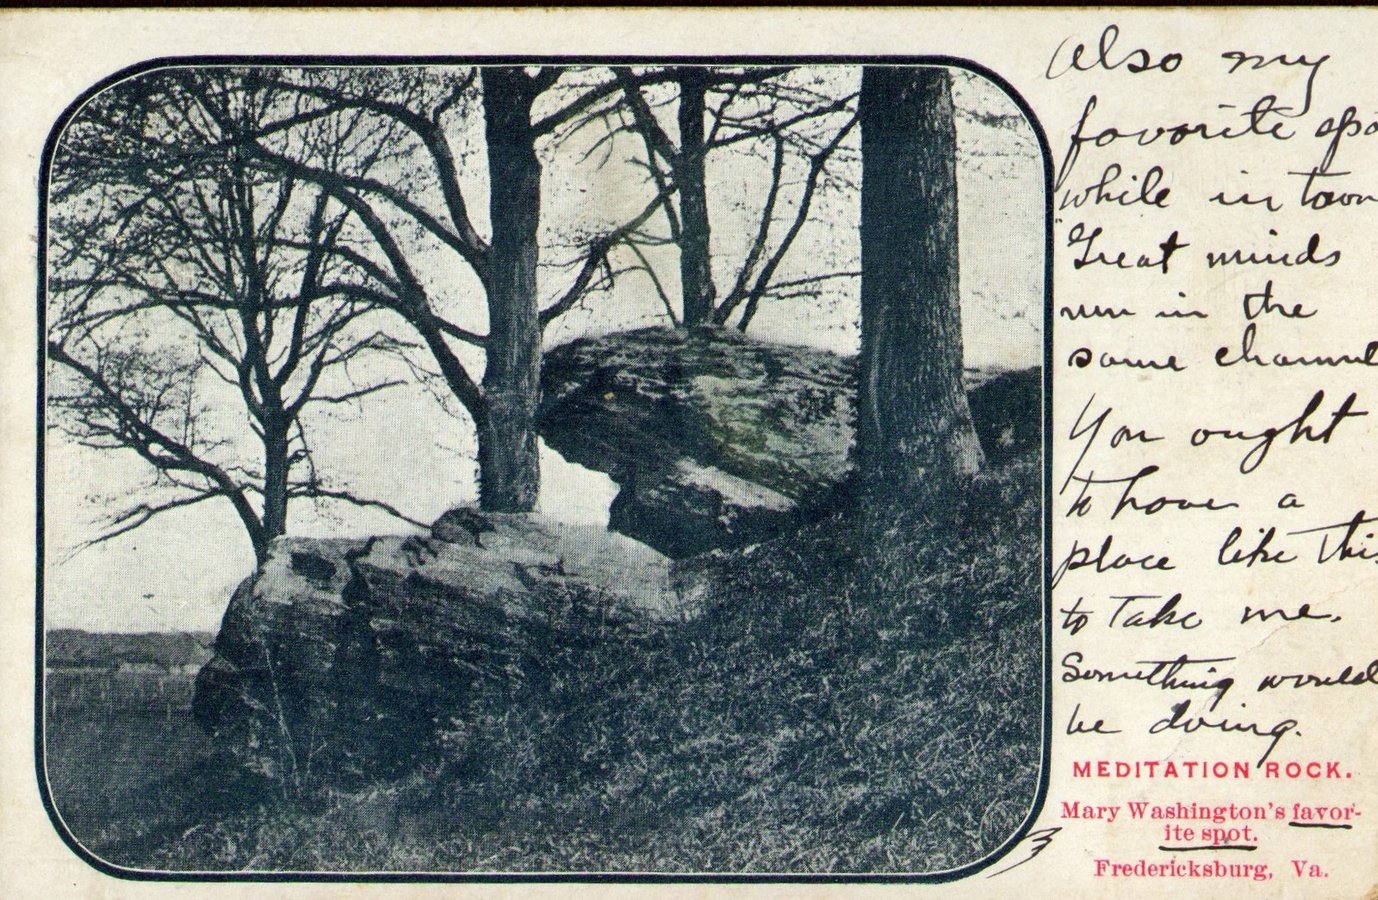 Also my
favorite spo
while in town
"Great minds
run in the
same channel
You ought
to have a
place like this
to take me.
Something would
be doing.
MEDITATION ROCK.
Mary Washington's favor-
ite spot.
Fredericksburg, Va.